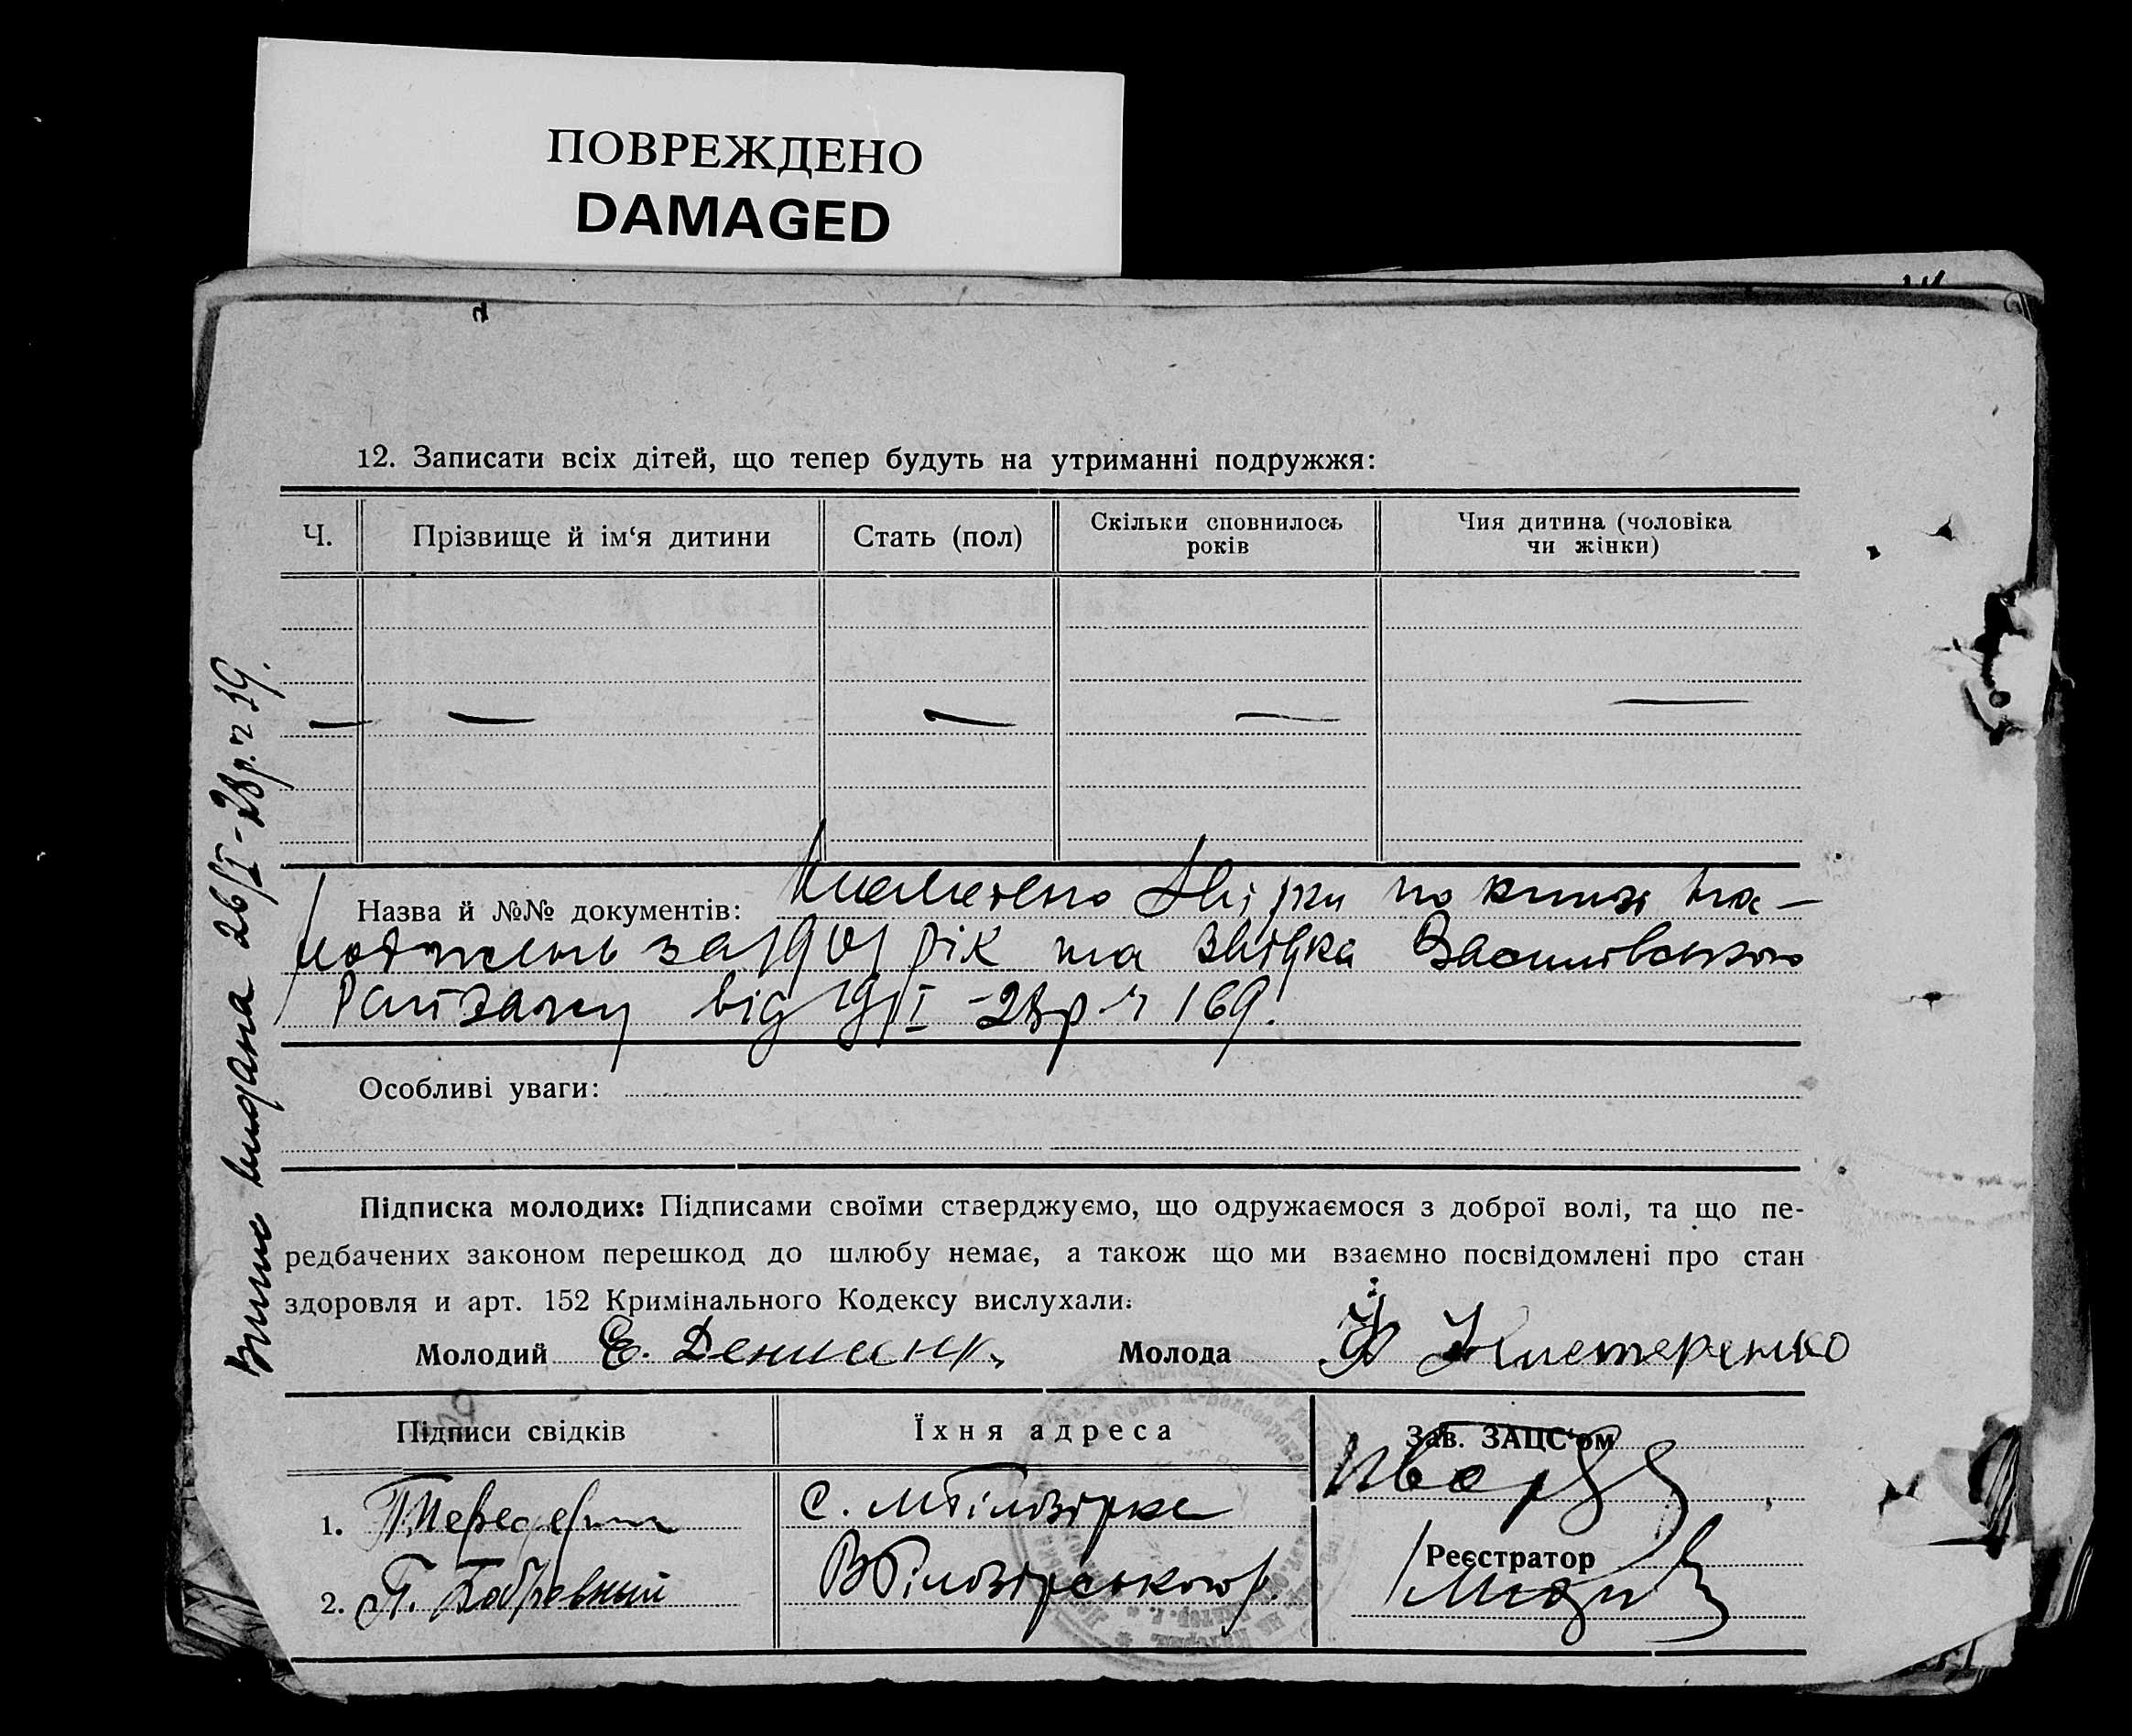 ПОВРЕЖДЕНО
DAMAGED
12. Записати всіх дітей, що тепер будуть на утриманні подружжя:
Ч.
Прізвище й ім‘я дитини
Стать (пол)
Скільки сповнилось
років
Чия дитина (чоловіка
чи жінки)
Назва й №№ документів: по книзі на-
за 1901 рік та
від 19/I -28р ч 169.
Особливі уваги:
Підписка молодих: Підписами своїми стверджуємо, що одружаємося з доброї волі, та що пе-
редбачених законом перешкод до шлюбу немає, а також що ми взаємно посвідомлені про стан
здоровля и арт. 152 Кримінального Кодексу вислухали:
Молодий Е.
Молода
Підписи свідків
Їхня адреса
Зав. ЗАЦС‘ом
1.
с. МБілозірка
Реєстратор
2. П.
ВБілозірського р.
Випис видана 26/I-28р. ч 39.